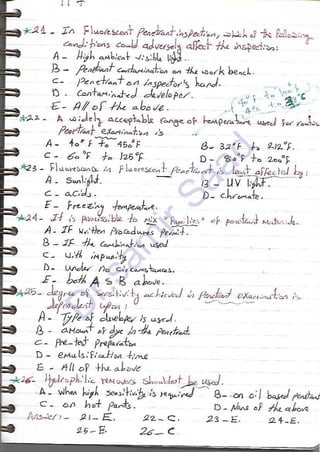 * 21 - In Fluorescent Penetrant inspection, which of the following
conditions could adversely affect the inspection:
A - High ambient visible light.
B - Penetrant contamination on the work bench.
C - Penetrant on inspector's hand.
D. Contaminated developer.
E - All of the above.
* 22 - A widely acceptable range of temperature used for
Penetrant examination is
A - 40°F to 450°F B - 32°F to 212°F.
C - 60°F to 125°F D - 80°F to 200°F.
* 23 - Fluorescence in Fluorescent penetrant is affected by:
A - Sunlight. B - UV light.
C - acids. D - chromate.
E - Freezing temperature.
* 24 - It is permissible to mix "Families" of penetrant materials.
A. IF written Procedures Permit.
B - IF the Combination used
C - with impunity
D - under no circumstances.
E - both A & B above.
* 25 - degree of sensitivity achieved in Penetrant examination is
dependent upon:
A - Type of developer is used.
B - amount of dye in the Penetrant.
C - Pre-test Preparation
D - emulsification time
E - All of the above
* 26 - Hydrophilic removers shouldnt be used.
A - when high sensitivity is required B - on oil based penetrant
C - on hot parts. D - None of the above
Answer:- 21 - E. 22 - C. 23 - E. 24 - E.
25 - E. 26 - C.